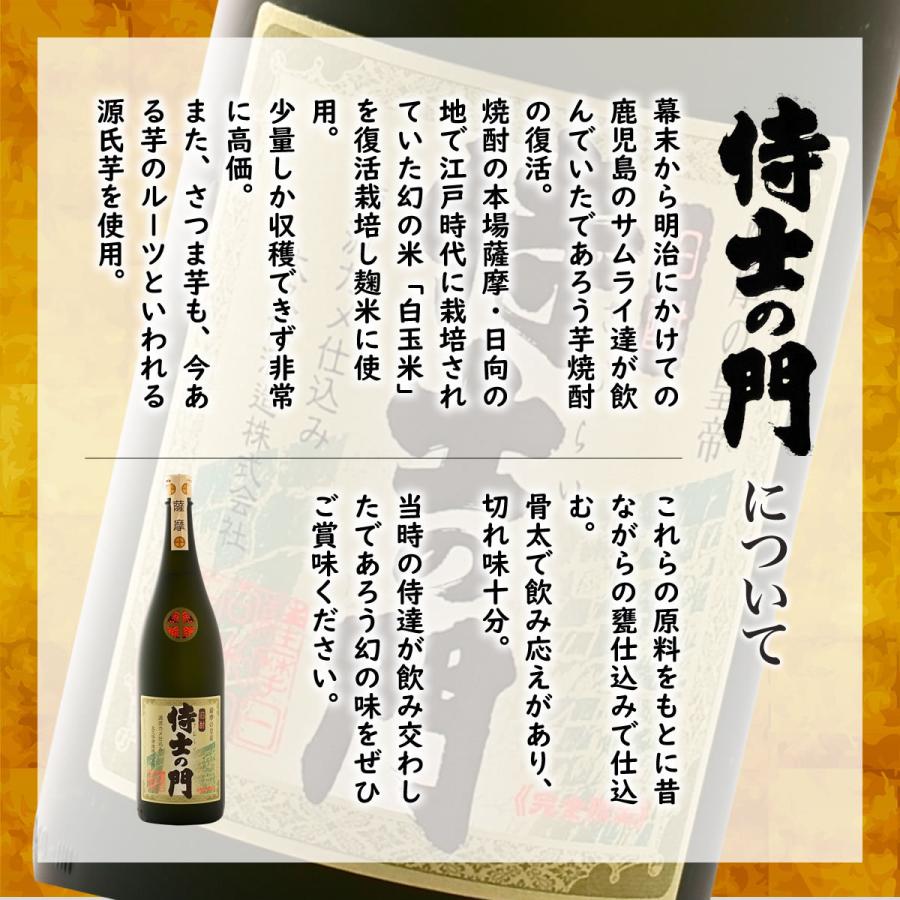 侍士の門について
幕末から明治にかけての
鹿児島のサムライ達が飲
んでいたであろう芋焼酎
の復活。
焼酎の本場薩摩・日向の
地で江戸時代に栽培され
ていた幻の米「白玉米」
を復活栽培し麹米に使
用。
少量しか収穫できず非常
に高価。
また、さつま芋も、今あ
る芋のルーツといわれる
源氏芋を使用。
これらの原料をもとに昔
ながらの甕仕込みで仕込
む。
骨太で飲み応えがあり、
切れ味十分。
当時の侍達が飲み交わし
たであろう幻の味をぜひ
ご賞味ください。
薩摩
侍士の門